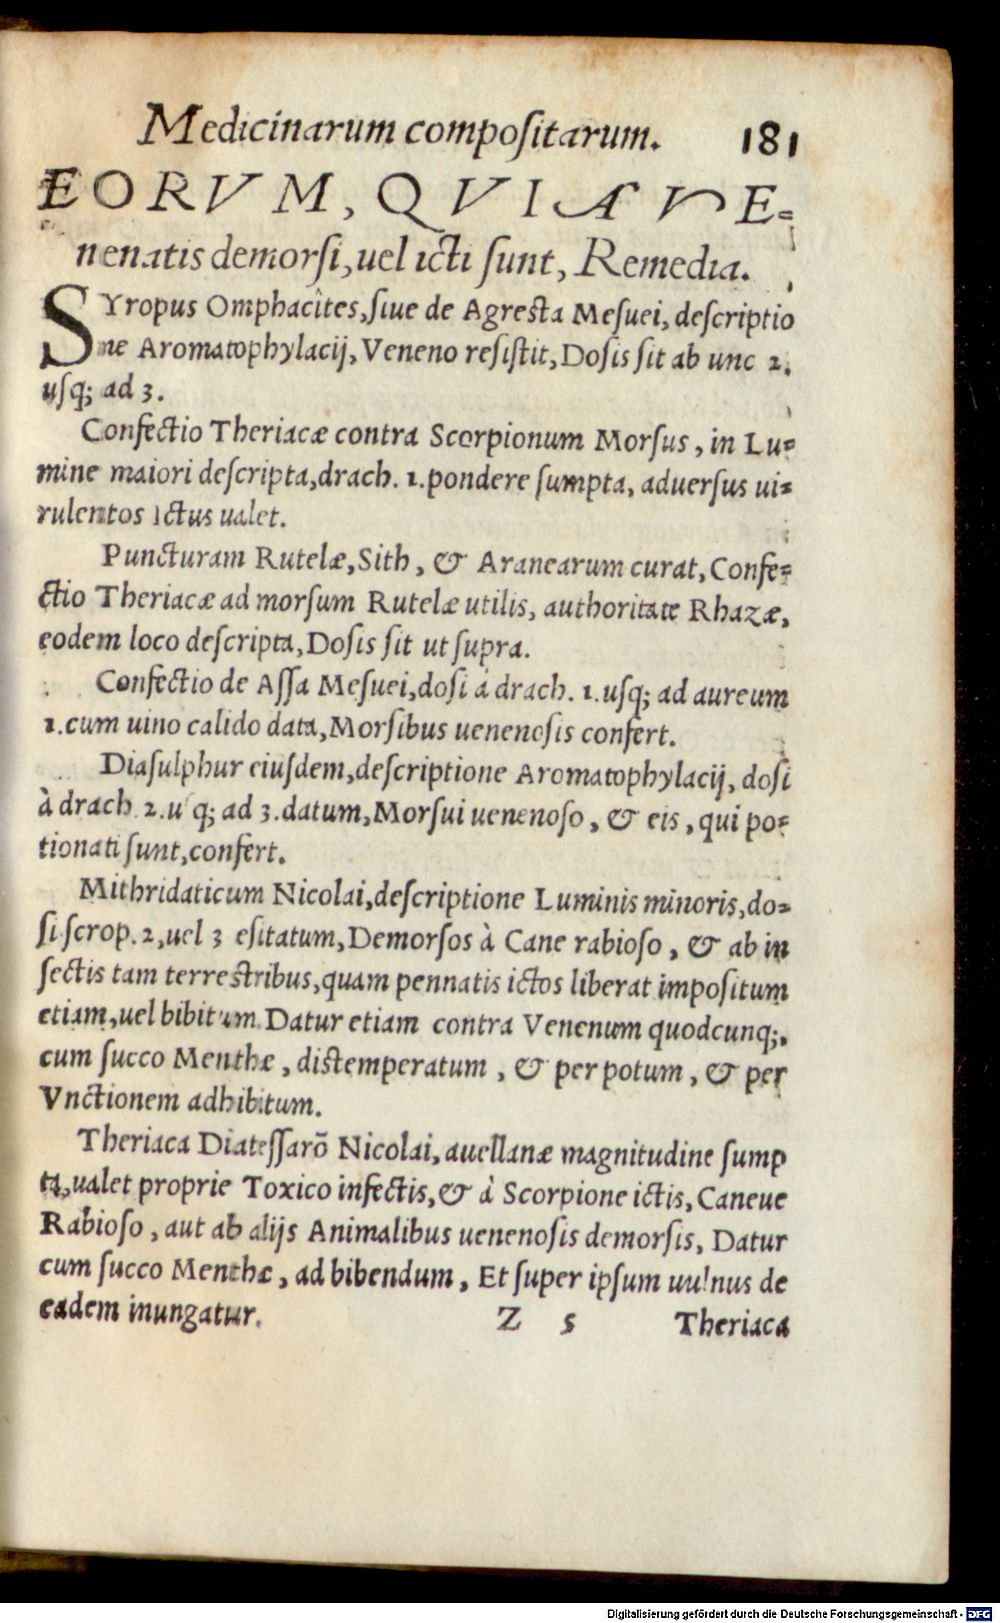 Medicinarum compositarum. 181
EORVM, QVI A VE-
nenatis demorsi, uel icti sunt, Remedia.
SYropus Omphacîtes, siue de Agresta Mesuei, descriptio
ne Aromatophylacij, Veneno resistit, Dosis sit ab unc 2.
usq; ad 3.
Confectio Theriacæ contra Scorpionum Morsus, in Lu-
mine maiori descripta, drach. 1. pondere sumpta, aduersus ui-
rulentos Ictus ualet.
Puncturam Rutelæ, Sith, & Aranearum curat, Confe-
ctio Theriacæ ad morsum Rutelæ utilis, authoritate Rhazæ,
eodem loco descripta, Dosis sit ut supra.
Confectio de Assa Mesuei, dosi à drach. 1. usq; ad aureum
1. cum uino calido data, Morsibus uenenosis confert.
Diasulphur eiusdem, descriptione Aromatophylacij, dosi
à drach. 2. usq; ad 3. datum, Morsui uenenoso, & eis, qui po-
tionati sunt, confert.
Mithridaticum Nicolai, descriptione Luminis minoris, do-
si scrop. 2, uel 3 esitatum, Demorsos à Cane rabioso, & ab in
sectis tam terrestribus, quam pennatis ictos liberat impositum
etiam, uel bibitum. Datur etiam contra Venenum quodcunq;.
cum succo Menthæ, distemperatum, & per potum, & per
Vnctionem adhibitum.
Theriaca Diatessarõ Nicolai, auellanæ magnitudine sump
ta, ualet proprie Toxico infectis, & à Scorpione ictis, Caneue
Rabioso, aut ab alijs Animalibus uenenosis demorsis, Datur
cum succo Menthæ, ad bibendum, Et super ipsum uulnus de
eadem inungatur.
Z 5 Theriaca
Digitalisierung gefördert durch die Deutsche Forschungsgemeinschaft - DFG